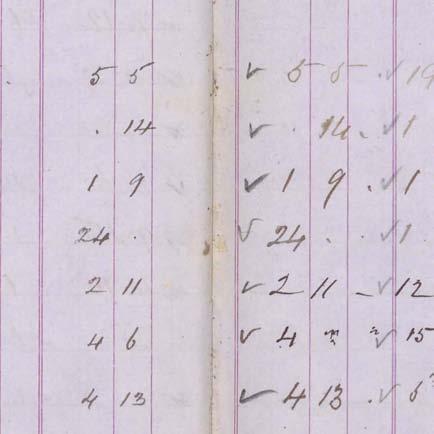 . 5 5 ✓ 5 5 . ✓ 19
. 14 ✓ . 14 . ✓ 1
1 9 ✓ 1 9 . ✓ 1
24 . ✓ 24 . . ✓ 1
2 11 ✓ 2 11 – ✓ 12
4 6 ✓ 4 ✓ 15
4 13 ✓ 4 13 . ✓ 6